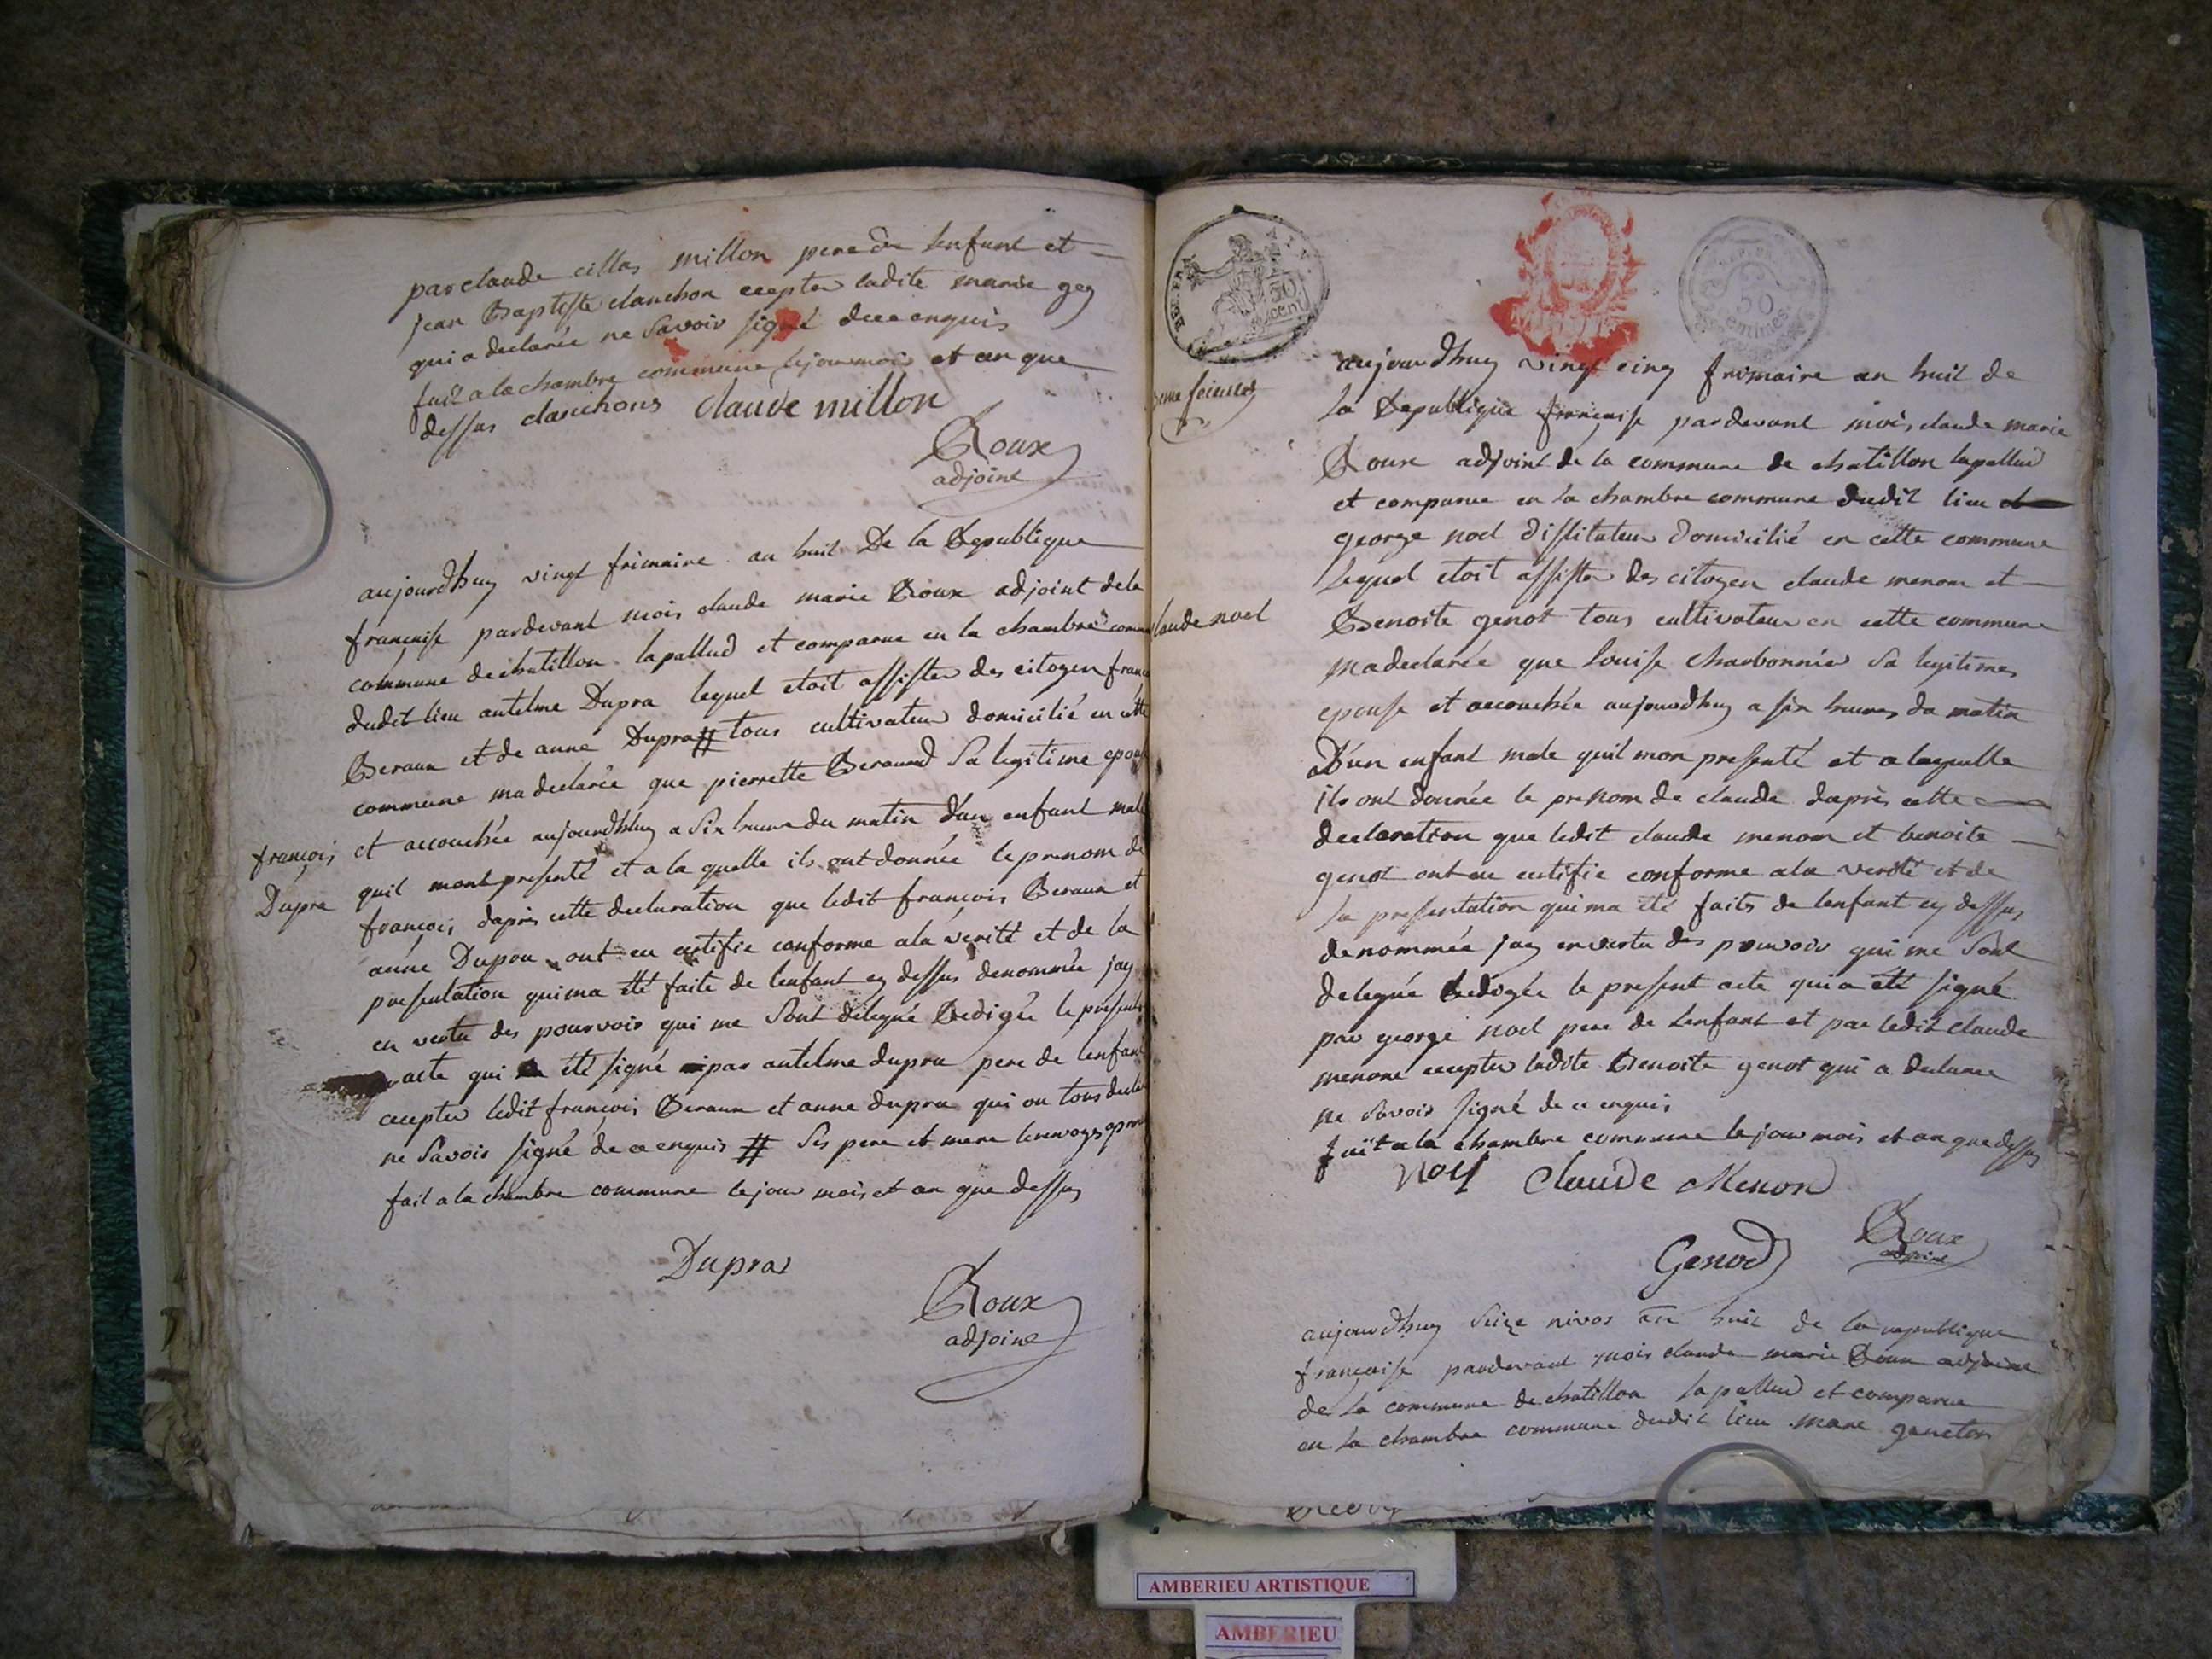 par claude cillas millon pere de lenfant et
jean Baptiste clanchon ecepter ladite marie gey
qui a declarée ne Savoir signé de ce enquis
fait a la chambre commune le jour mois et an que
dessus clanchons claude millon
Roux
adjoint
aujourdhuy vingt frimaire an huit De la Republique
francaise pardevant mois claude marie Roux adjoint de la
commune de chatillon lapallud et comparue en la chambre comm
dudit lieu antelme Dupra lequel etoit assister des citoyen franc
Beraux et de anne Dupra # tous cultivateur domicilié en cette
commune ma declarée que pierrette Beraund Sa legitime epou
et accouchée aujourdhuy a Six heure du matin d'un enfant male
françois
Dupra
quil mont presenté et a la quelle ils ont donnée le prenom de
françois daprés cette declaration que ledit françois Beraux et
anne Dupra ont eu certifie conforme a la verité et de la
presentation qui ma été faite de lenfant cy dessus denommée jay
en vertu des pourvoir qui me Sont délegué Redigée le present
acte qui a été signé par antelme dupra pere de lenfant
ecepter ledit françois Beraux et anne dupra qui on tous decla
ne Savoir signé de ce enquis # Ses pere et mere
fait a la chambre commune le jour mois et an que dessus
Dupra
Roux
adjoint
REP. FRA.
50
cent
50
centimes
aujourdhuy vingt cinq frimaire an huit de
la Republique française pardevant mois claude marie
Roux adjoint de la commune de chatillon lapallud
et comparue en la chambre commune dudit lieu
george noel distitateur domicilié en cette commune
lequel etoit assister des citoyen claude menon et
laude noel
Benoite genot tous cultivateur en cette commune
ma declarée que Louise charbonnier Sa legitimes
epouse et accouchée aujourdhuy a six heures du matin
d'un enfant male quil mon presenté et a laquelle
ils ont donnée le prenom de claude daprès cette
declaration que ledit claude menon et benoite
genot ont eu certifie conforme a la verité et de
la presentation qui ma été faits de lenfant cy dessus
denommée jay en vertu des pouvoir qui me Sont
delegué Redigée le present acte qui a été signé
par george noel pere de Lenfant et par ledit claude
menone ecepter ladite Benoite genot qui a declaree
ne Savoir signé de ce enquis
fait a la chambre commune le jour mois et an que dessus
Noel Claude Menon
Roux
adjoint
Genod
aujourdhuy Seize nivos an huit de la republique
française pardevant mois claude marie Roux adjoint
de la commune de chatillon lapallud et comparue
en la chambre commune dudit lieu marc ganeton
AMBERIEU ARTISTIQUE
AMBERIEU